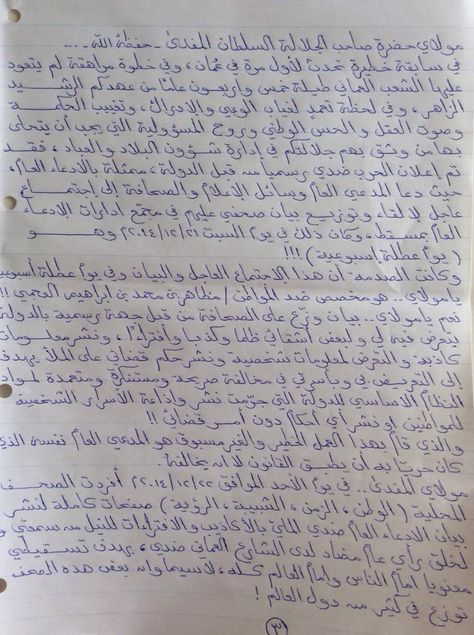 مولاي حضرة صاحب الجلالة السلطان المفدى - حفظه الله - ...
في سابقة خطيرة تحدث لأول مرة في عُمان، وفي خطوة مراهقة لم يتعود
عليها الشعب العماني طيلة خمس وأربعون عامًا من عهدكم الرشيد
الزاهر، وفي لحظة تعمدٍ لغياب الوعي والإدراك، وتغييب الحكمة
وصوت العقل والحس الوطني وروح المسؤولية التي يجب أن يتحلى
بها من وثق بهم جلالتكم في إدارة شؤون البلاد والعباد، فقد
تم إعلان الحرب ضدي رسمياً من قبل الدولة، ممثلة بالادعاء العام،
حيث دعا المدعي العام وسائل الإعلام والصحافة إلى إجتماع
عاجل لإلقاء وتوزيع بيان صحفي عليهم في مجمع ادارات الإدعاء
العام بمسقط، وكان ذلك في يوم السبت ٢٠١٤/١٢/٢١ وهو
( يوم عطلة إسبوعية ) !!!
وكانت الصدمة - أن هذا الإجتماع العاجل والبيان وفي يوم عطلة أسبوعية
يا مولاي .. هو مخصص ضد المواطن / مظاهر بن محمد بن إبراهيم العجمي !!
نعم يا مولاي .. بيان وزع على الصحافة من قبل جهة رسمية بالدولة
يتعرض فيه لي ولبعض أشقائي ظلماً وكذباً وأفتراءً، ونشر معلومات
كاذبة، والتعرض لمعلومات شخصية ونشر حكم قضائي على الملأ بهدف
إلى التعريض بي وبأسرتي في مخالفة صريحة ومستنكرة ومتعمدة لمواد
النظام الأساسي للدولة التي جرّمت نشر وإذاعة الأسرار الشخصية
للمواطنين أو نشر أي أحكام دون أمر قضائي !!
والذي قام بهذا العمل الخطير والغير مسبوق هو المدعي العام نفسه الذي
كان حريّاً به أن يطبق القانون لا أن يخالفه.
مولاي المفدى .. في يوم الأحد الموافق ٢٠١٤/١٢/٢٢ أفردت الصحف
المحلية ( الوطن، الزمن، الشبيبة، الرؤية ) صفحات كاملة لنشر
بيان الادعاء العام ضدي الملئ بالأكاذيب والافتراءات للنيل من سمعتي و
لخلق رأي عام مضاد لدى الشارع العماني ضدي، بهدف تسقيطي
معنويا أمام الناس وأمام العالم كله، لاسيما وأن بعض هذه الصحف
توزع في كثير من دول العالم !
٣